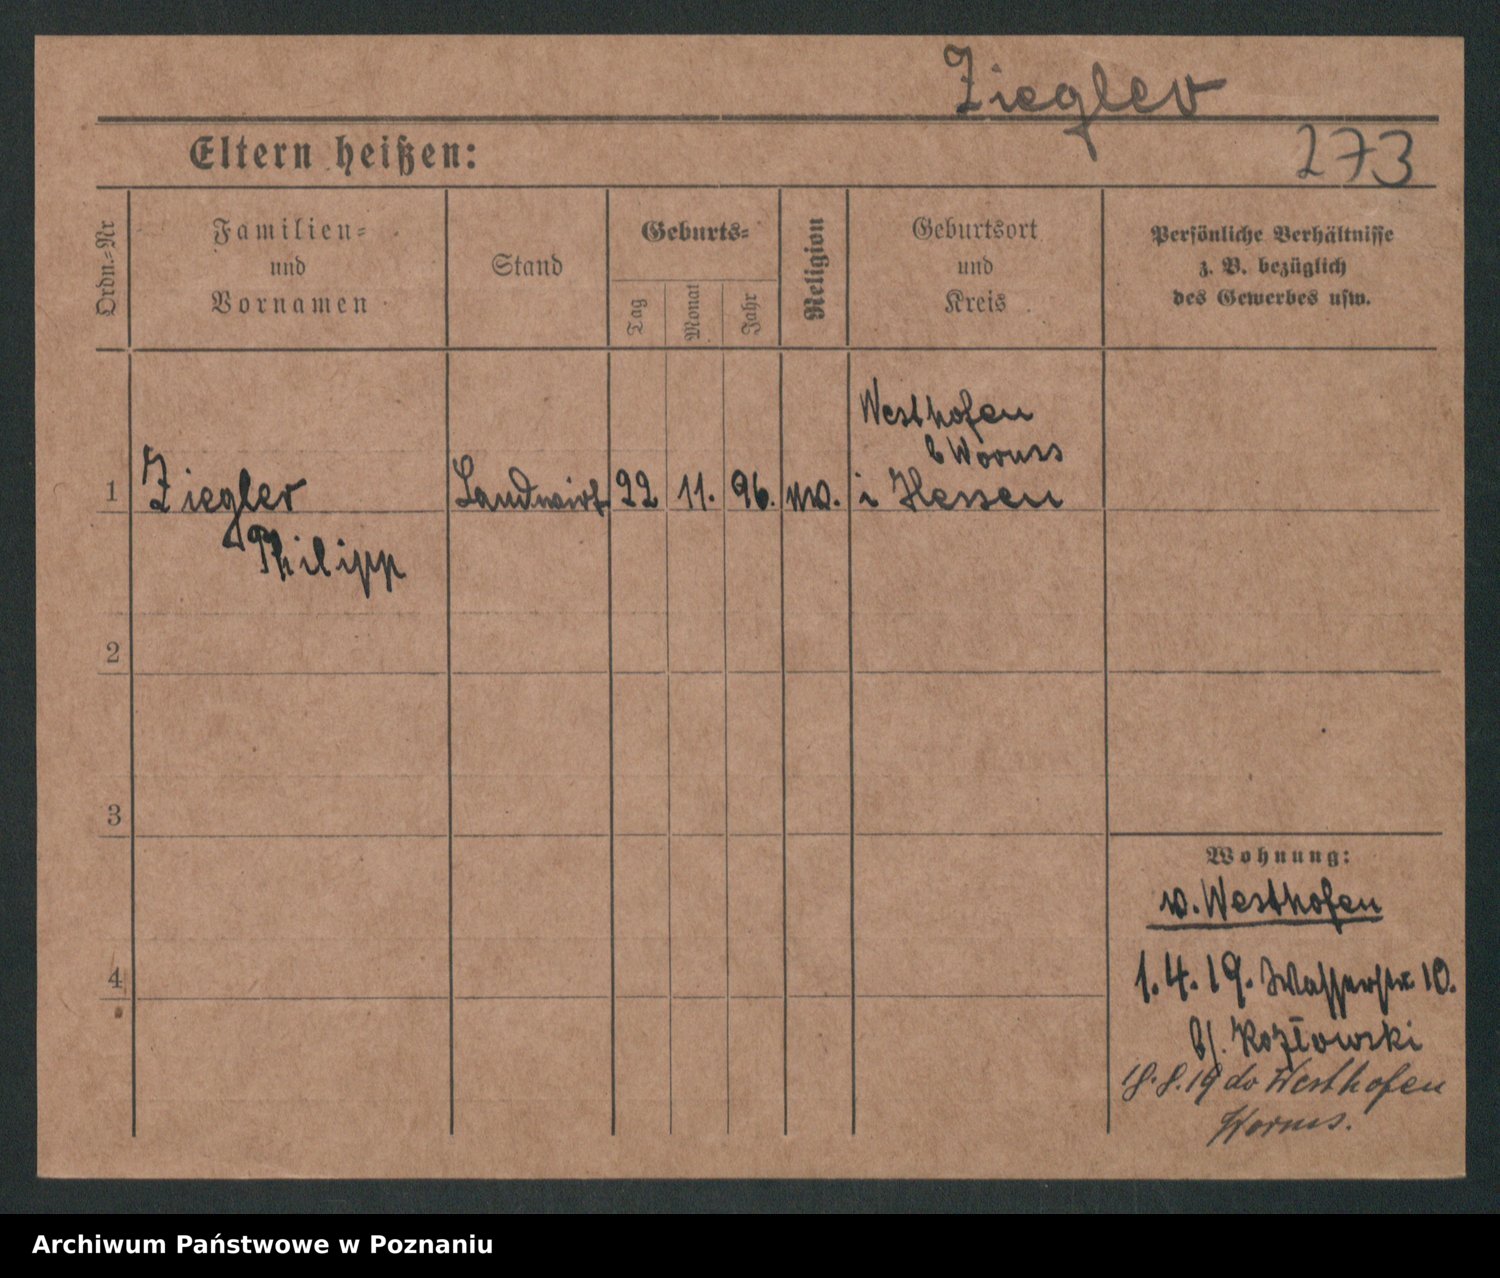 Ziegler
273
Eltern heißen:
Ordn.-Nr
Familien-
und
Vornamen
Stand
Geburts-
Tag
Monat
Jahr
Religion
Geburtsort
und
Kreis
Persönliche Verhältnisse
z. B. bezüglich
des Gewerbes usw.
Westhofen
b Worms
1 Ziegler Landwirt 22 11. 96. i Hessen
Philipp
2
3
Wohnung:
v. Westhofen
4
1.4.19. Wasserstr. 10.
b/. Kozłowski
18.8.19 do Westhofen
Worms.
Archiwum Państwowe w Poznaniu